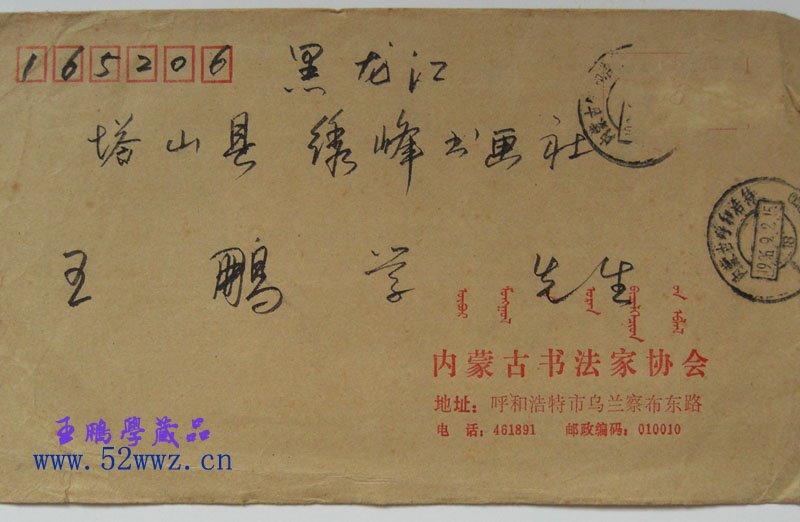 165206
黑龙江
塔山县 绣峰书画社
王鹏学 先生
内蒙古书法家协会
地址：呼和浩特市乌兰察布东路
电 话：461891 邮政编码：010010
内蒙古呼和浩特
18
王鵬學藏品
www.52wwz.cn